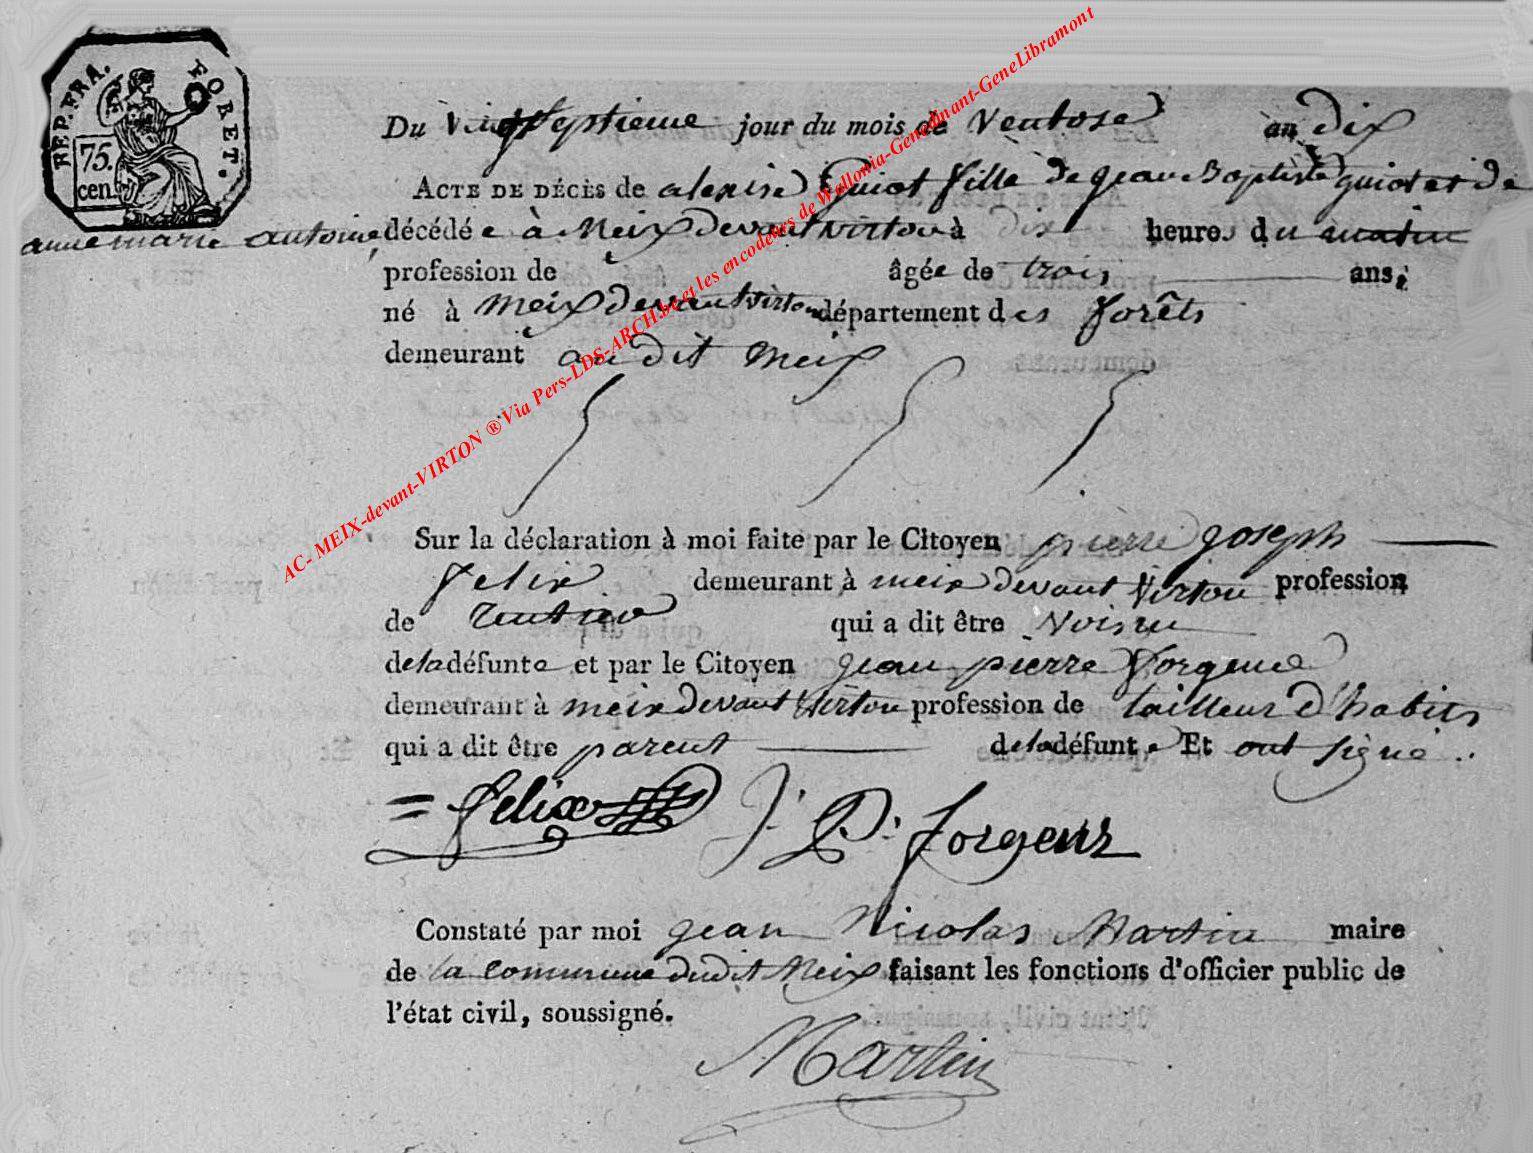 REP. FRA. FORET.
75.
cen.
AC- MEIX-devant-VIRTON ® Via Pers-LDS-ARCH.be et les encodeurs de Wallonia-GeneDinant-GeneLibramont
Du Vingtseptieme jour du mois de Ventose an dix
ACTE DE DÉCÈS de alexise Guiot fille de jean Baptiste guiot et de
anne marie antoine, décédée à Meix devant virton à dix heures du matin
profession de âgée de trois ans,
né à Meix devant virton département des forêts
demeurant au dit Meix
Sur la déclaration à moi faite par le Citoyen pierre joseph
felix demeurant à meix devant Virton profession
de rentier qui a dit être Voisin
de la défunte et par le Citoyen jean pierre forgeur
demeurant à meix devant Virton profession de tailleur d'habits
qui a dit être parent de la défunte Et ont signé.
felix J. P. forgeur
Constaté par moi jean Nicolas Martin maire
de la commune dudit Meix faisant les fonctions d'officier public de
l'état civil, soussigné.
Martin